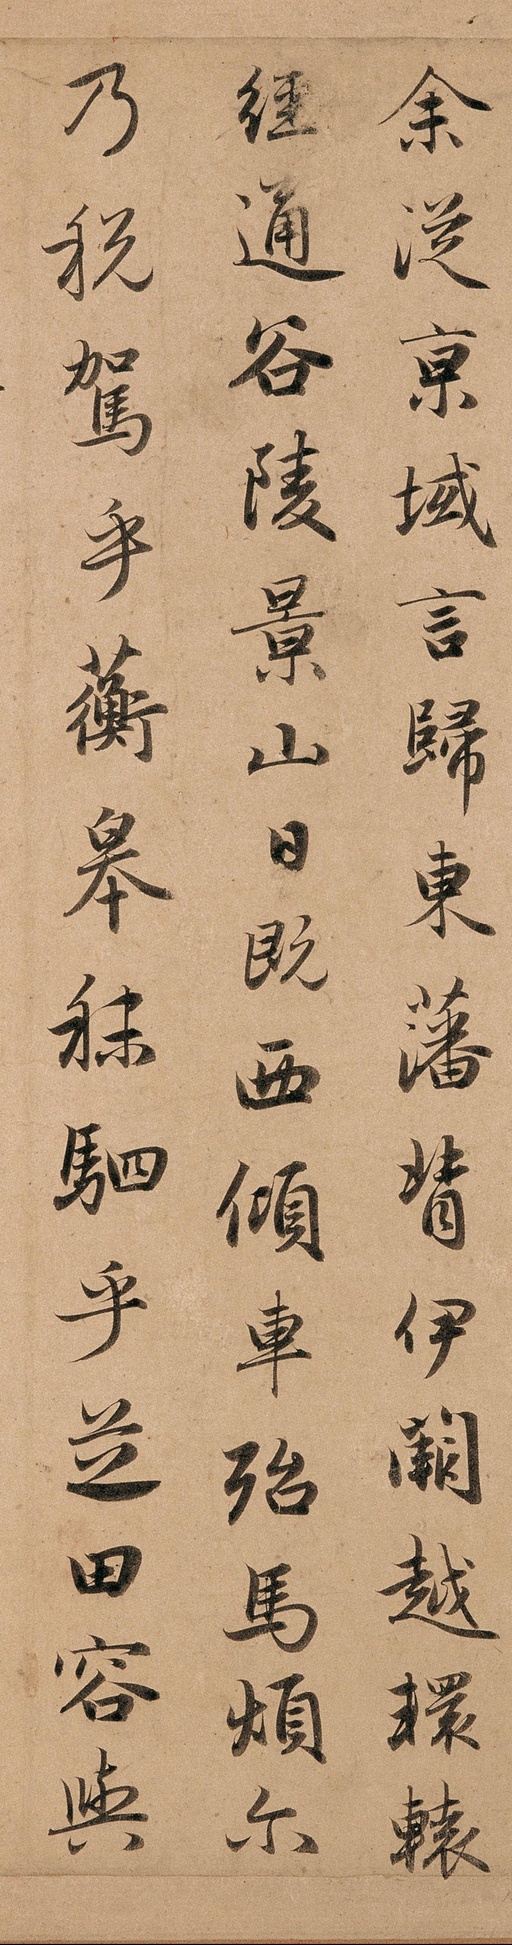 余從京域言歸東藩背伊闕越轘轅
經通谷陵景山日既西傾車殆馬煩尓
乃税駕乎蘅皋秣駟乎芝田容與